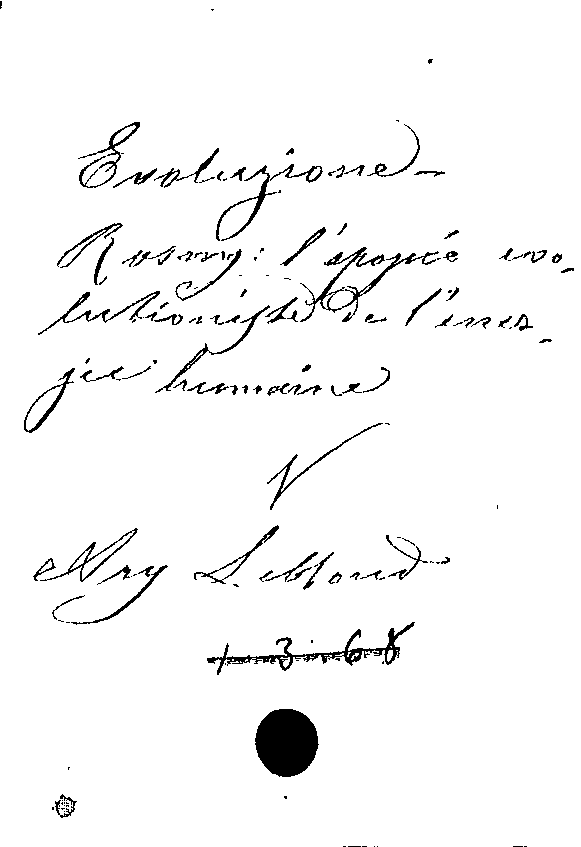 Evoluzione –
Rosny: l'apogée evo-
lutioniste de l'éner-
gie humaine
V
Ary Leblond
1368